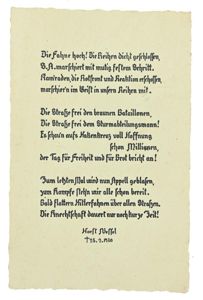 Die Fahne hoch! Die Reihen dicht geschlossen,
S.A. marschiert mit mutig festem Schritt.
Kam'raden, die Rotfront und Reaktion erschossen,
marschier'n im Geist in unsern Reihen mit.
Die Straße frei den braunen Bataillonen,
Die Straße frei dem Sturmabteilungsmann!
Es schau'n aufs Hakenkreuz voll Hoffnung
schon Millionen,
der Tag für Freiheit und für Brot bricht an!
Zum letzten Mal wird nun Appell geblasen,
zum Kampfe steh'n wir alle schon bereit.
Bald flattern Hitlerfahnen über allen Straßen.
Die Knechtschaft dauert nur noch kurze Zeit!
Horst Wessel
† 23. 2. 1930